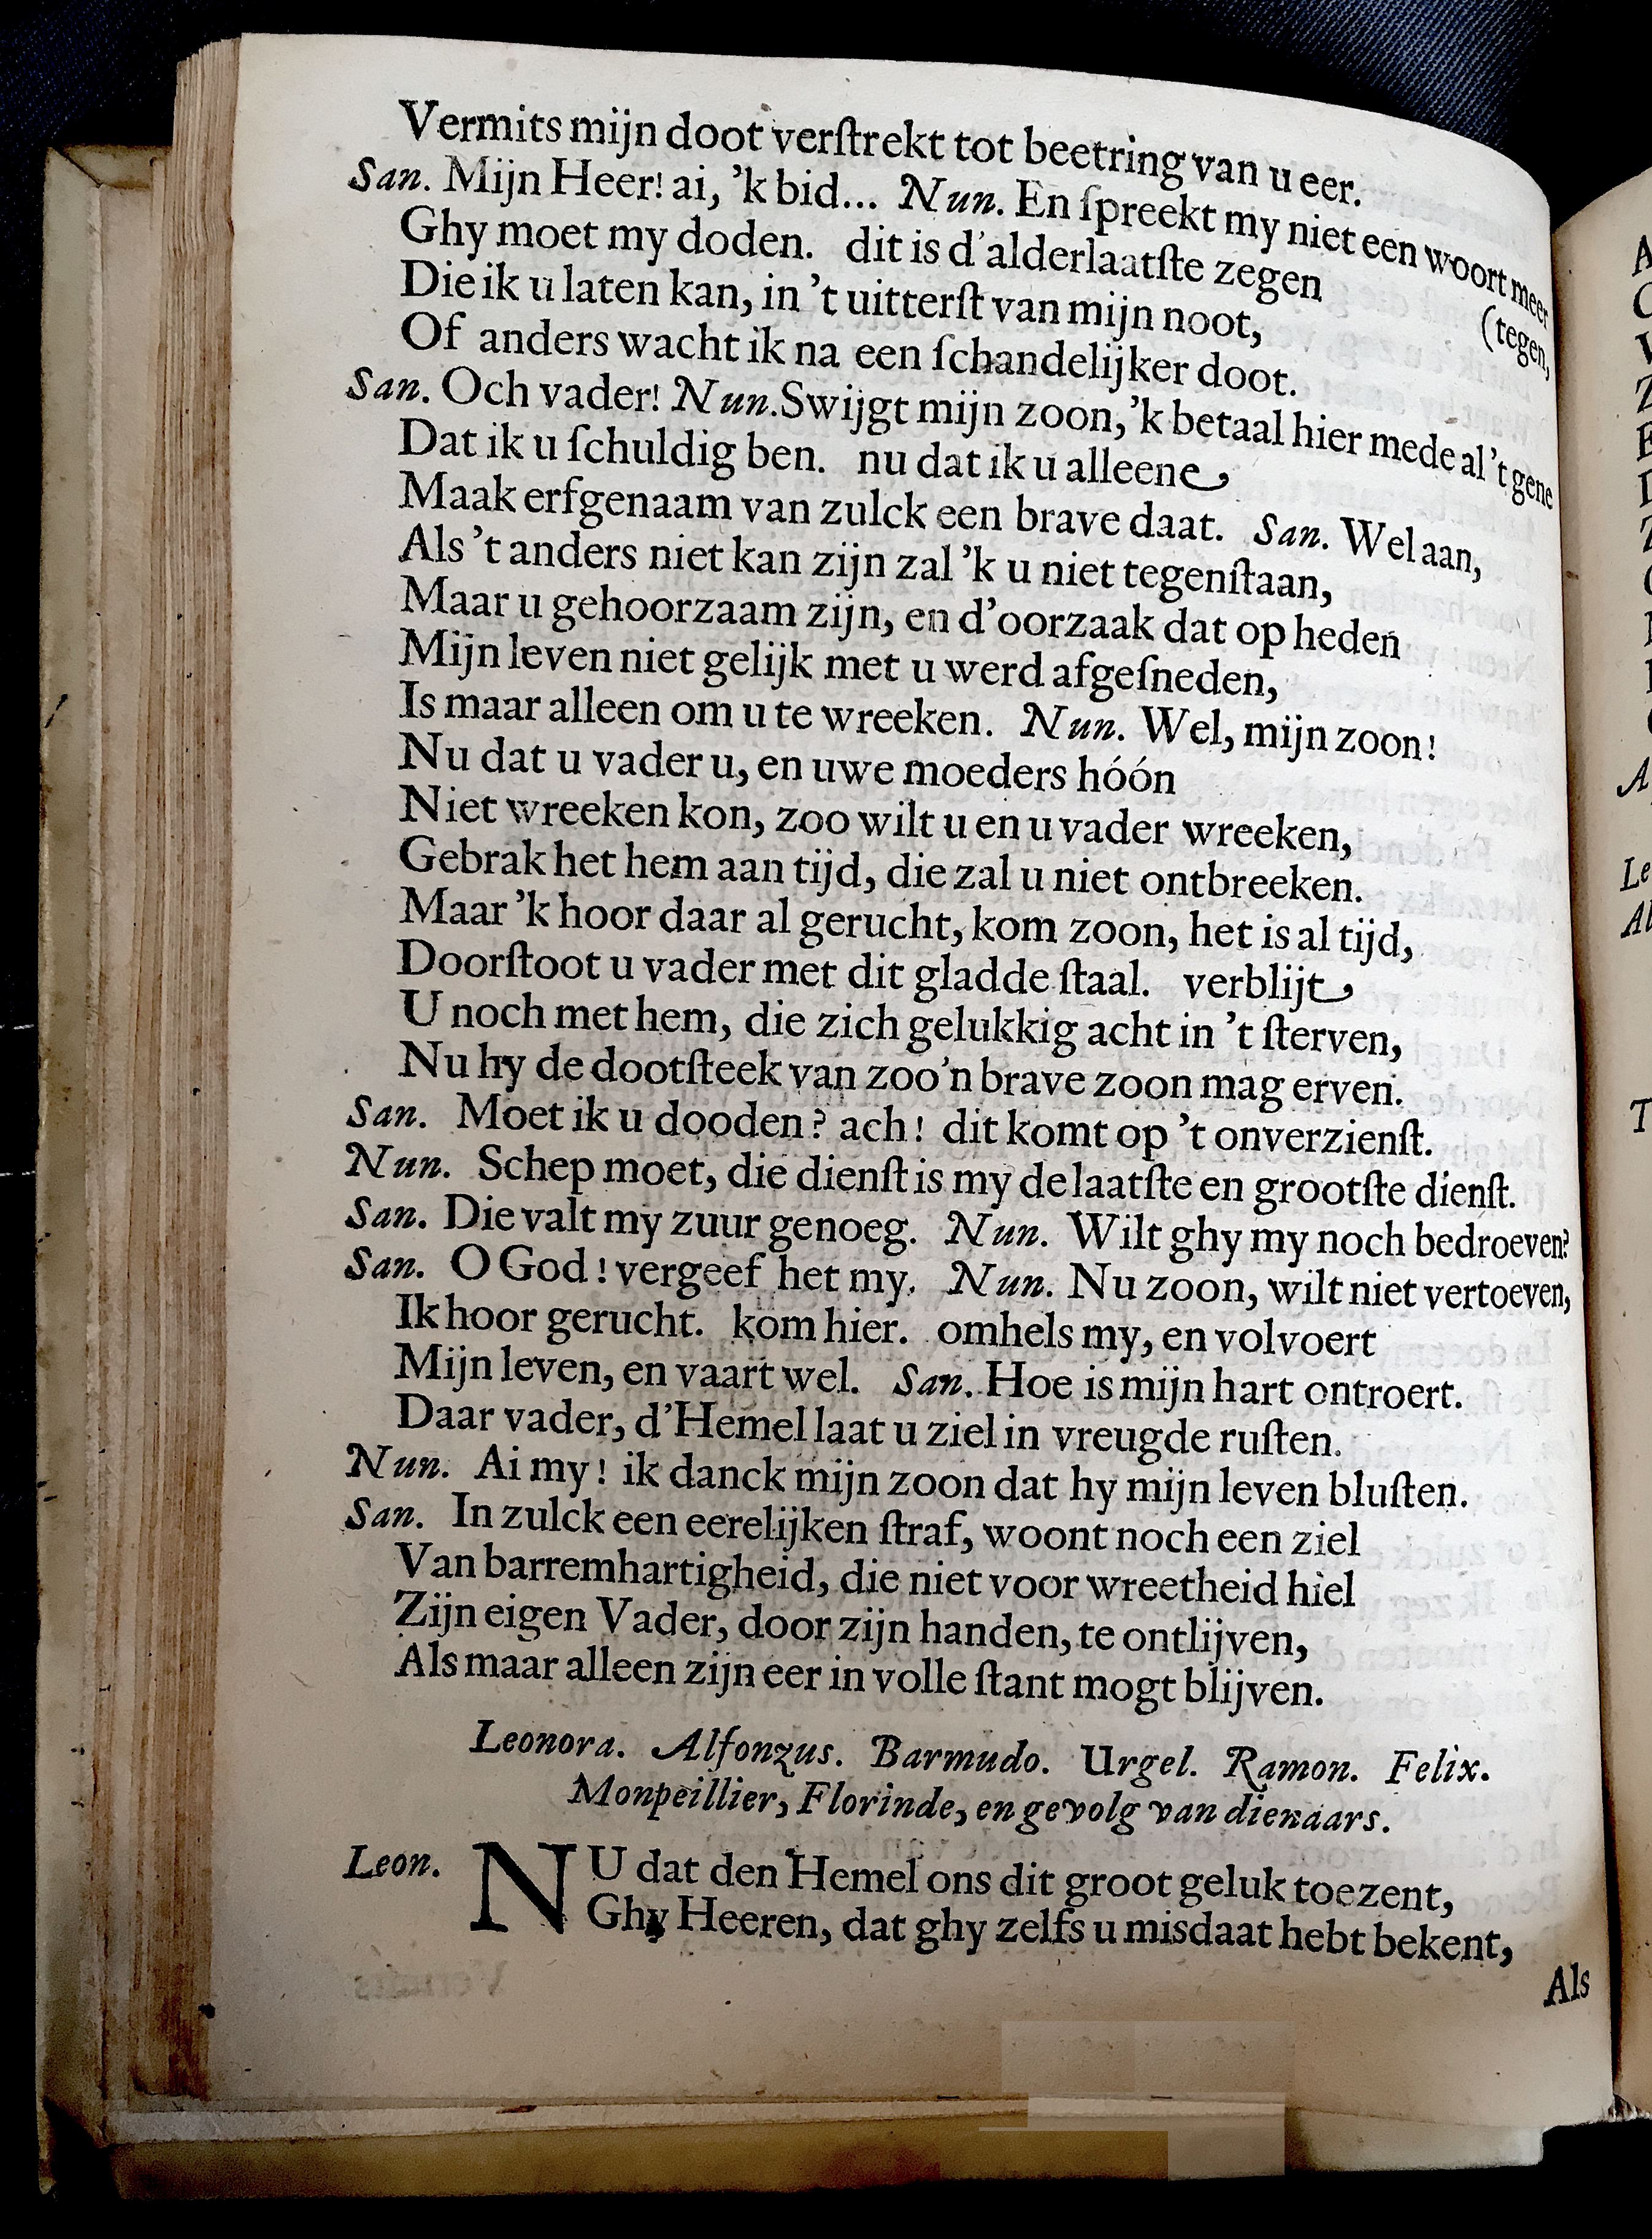 Vermits mijn doot verſtrekt tot beetring van u eer.
San. Mijn Heer! ai, ’k bid... Nun. En ſpreekt my niet een woort meer
(tegen,
Ghy moet my doden. dit is d’alderlaatſte zegen
Die ik u laten kan, in ’t uitterſt van mijn noot,
Of anders wacht ik na een ſchandelijker doot.
San. Och vader! Nun. Swijgt mijn zoon, ’k betaal hier mede al ’t gene
Dat ik u ſchuldig ben. nu dat ik u alleene
Maak erfgenaam van zulck een brave daat. San. Wel aan,
Als ’t anders niet kan zijn zal ’k u niet tegenſtaan,
Maar u gehoorzaam zijn, en d’oorzaak dat op heden
Mijn leven niet gelijk met u werd afgeſneden,
Is maar alleen om u te wreeken. Nun. Wel, mijn zoon!
Nu dat u vader u, en uwe moeders hóón
Niet wreeken kon, zoo wilt u en u vader wreeken,
Gebrak het hem aan tijd, die zal u niet ontbreeken.
Maar ’k hoor daar al gerucht, kom zoon, het is al tijd,
Doorſtoot u vader met dit gladde ſtaal. verblijt
U noch met hem, die zich gelukkig acht in ’t ſterven,
Nu hy de dootſteek van zoo’n brave zoon mag erven.
San. Moet ik u dooden? ach! dit komt op ’t onverzienſt.
Nun. Schep moet, die dienſt is my de laatſte en grootſte dienſt.
San. Die valt my zuur genoeg. Nun. Wilt ghy my noch bedroeven?
San. O God! vergeef het my. Nun. Nu zoon, wilt niet vertoeven,
Ik hoor gerucht. kom hier. omhels my, en volvoert
Mijn leven, en vaart wel. San. Hoe is mijn hart ontroert.
Daar vader, d’Hemel laat u ziel in vreugde ruſten.
Nun. Ai my! ik danck mijn zoon dat hy mijn leven bluſten.
San. In zulck een eerelijken ſtraf, woont noch een ziel
Van barremhartigheid, die niet voor wreetheid hiel
Zijn eigen Vader, door zijn handen, te ontlijven,
Als maar alleen zijn eer in volle ſtant mogt blijven.
Leonora. Alfonzus. Barmudo. Urgel. Ramon. Felix.
Monpeillier, Florinde, en gevolg van dienaars.
Leon. NU dat den Hemel ons dit groot geluk toezent,
Ghy Heeren, dat ghy zelfs u misdaat hebt bekent,
Als